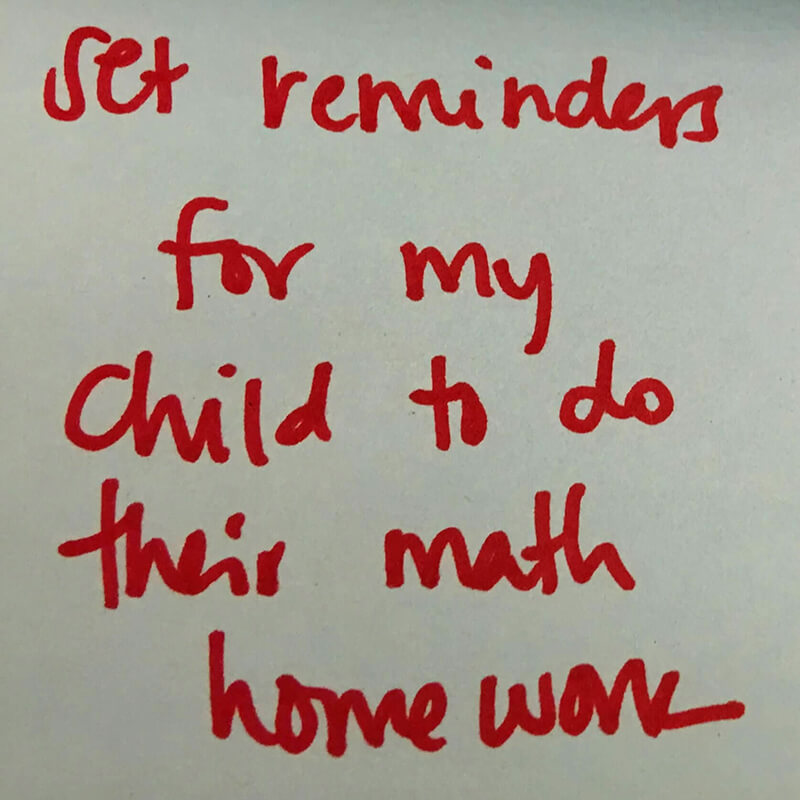 Set reminders
for my
Child to do
their math
home work